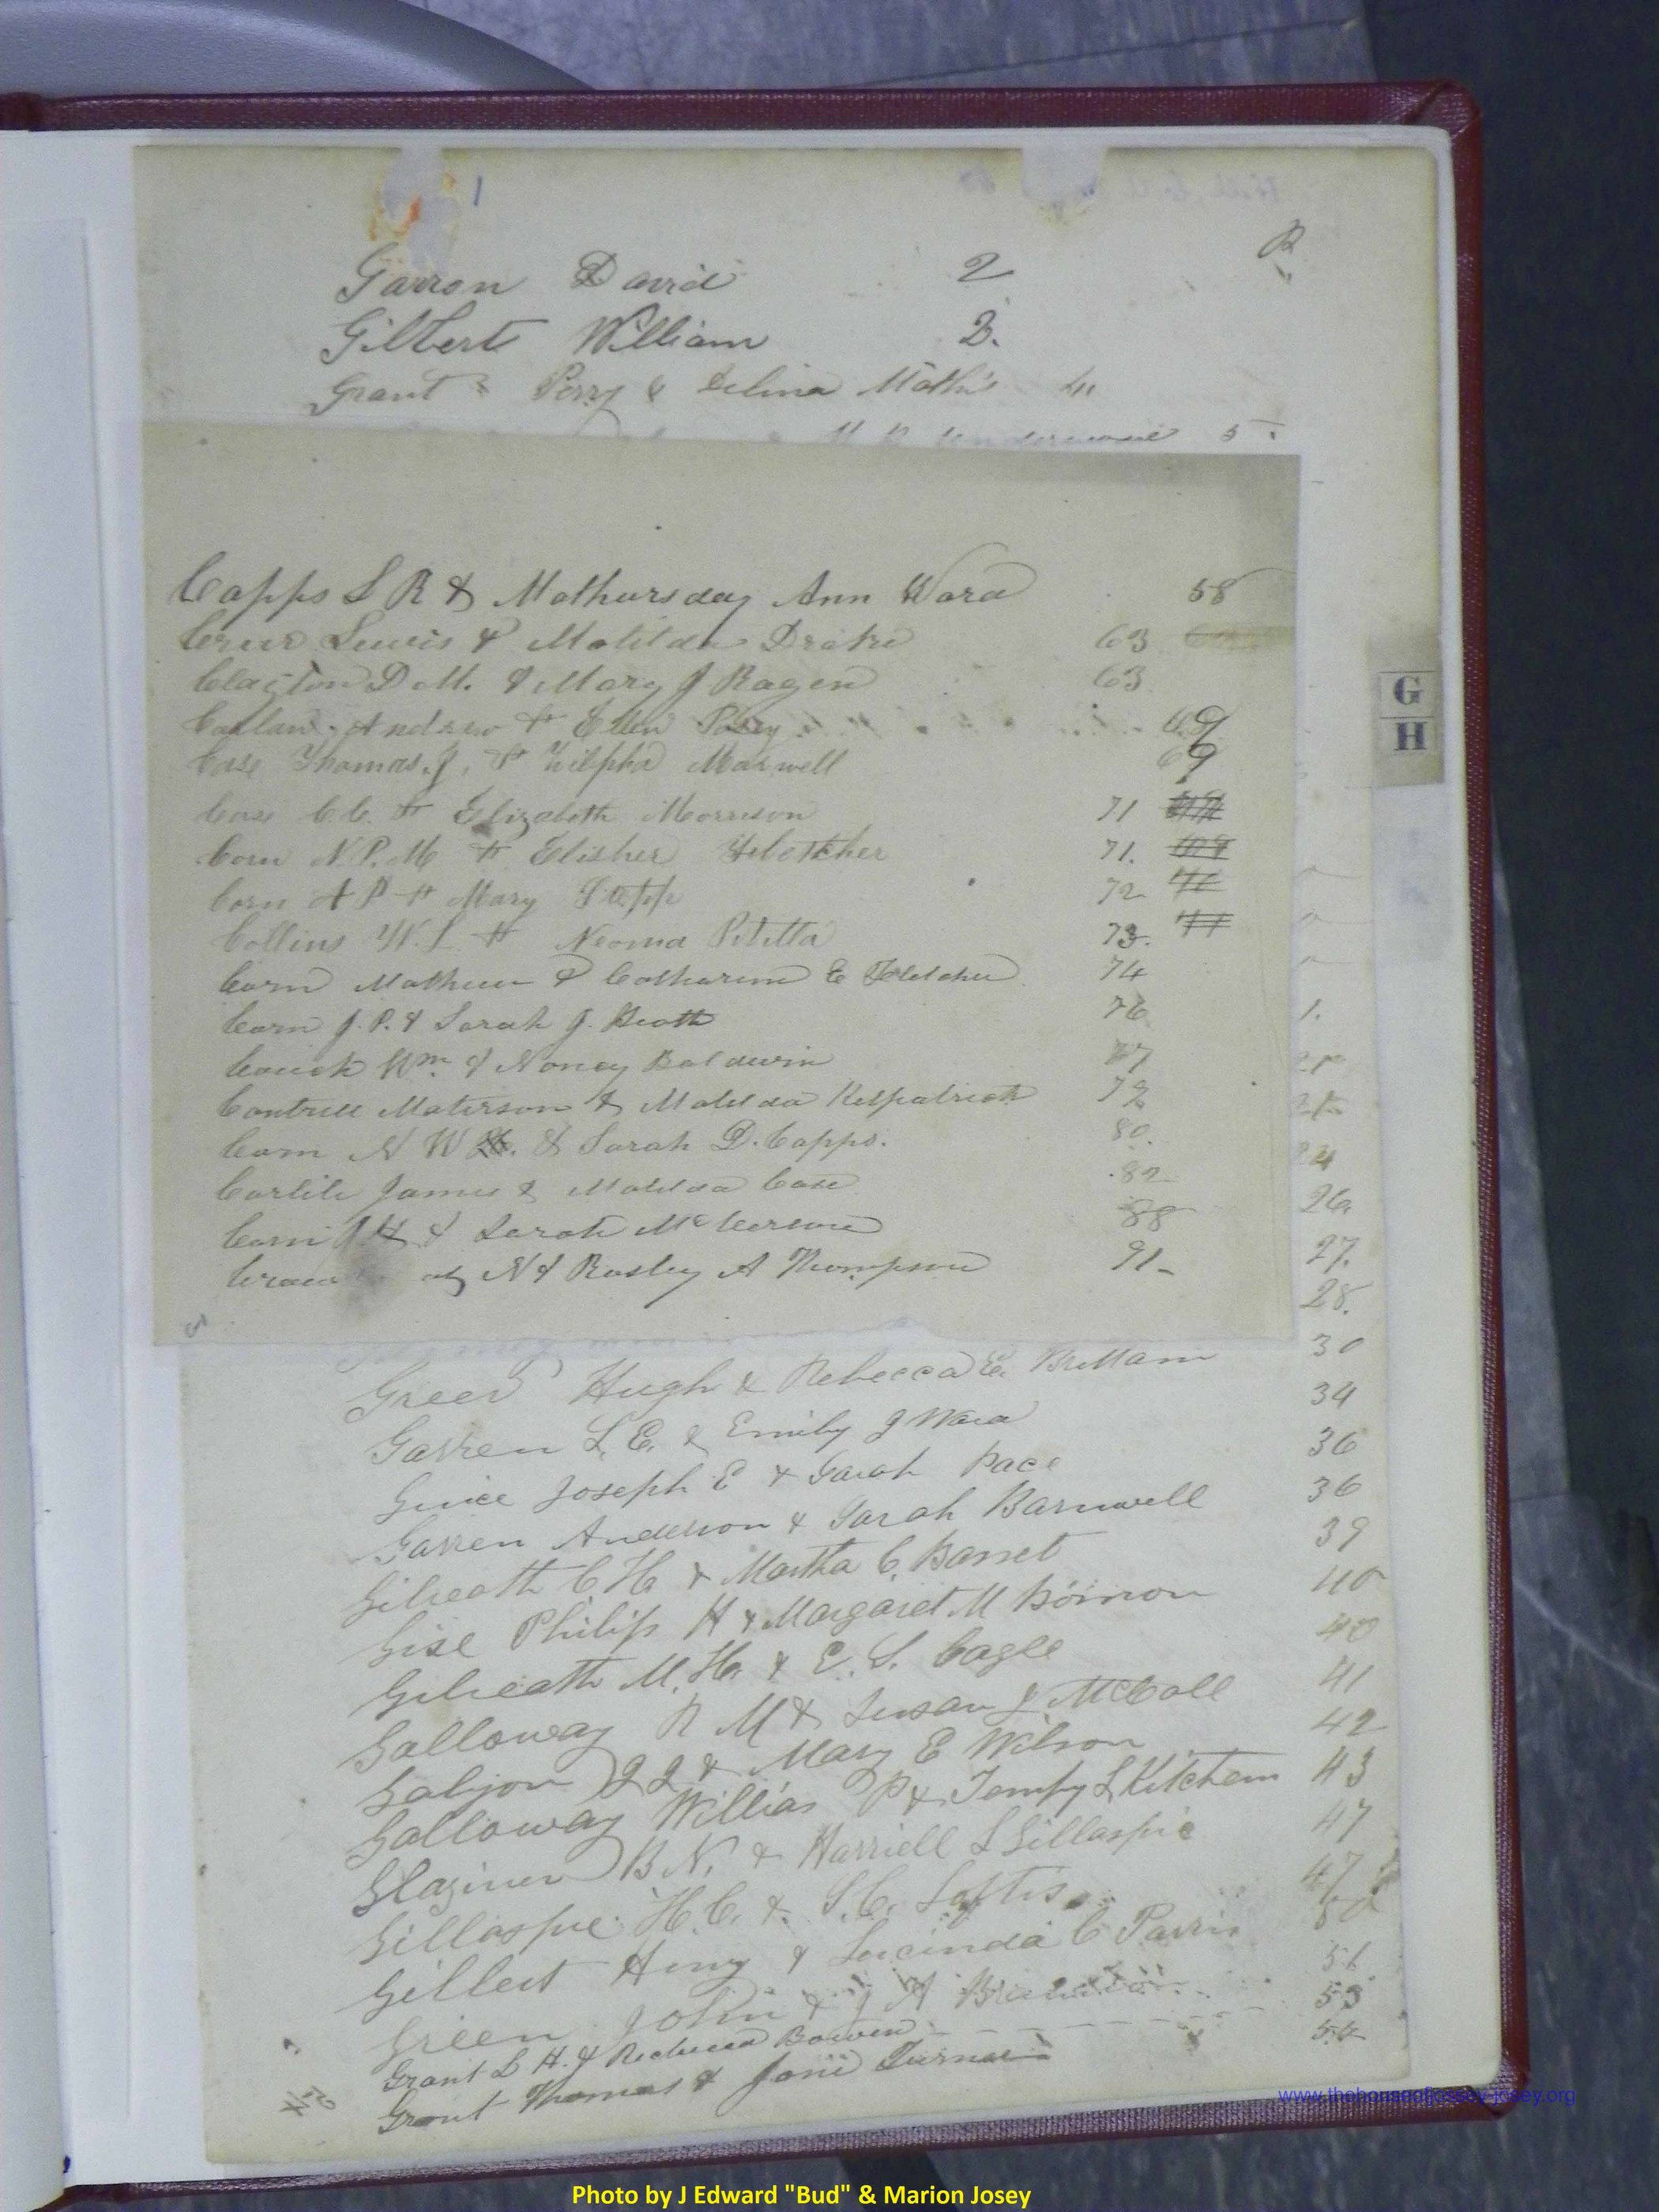 1
Garron David 2
Gilbert William 2.
Grant Perry & Selina Mathis 4
5
Capps L R & Mathursday Ann Ward 58
Lewis & Matilda Drake 63
Clayton D M. & Mary J Ragen 63
Andrew & Ellen Posey 69
Case Thomas. J, & Zilpha Maxwell 69
Case C.C. & Elizabeth Morrison 71
Corn N.P.M & Elisher Fletcher 71.
Corn A P & Mary Stepp 72
Collins W.L & Neoma Pititta 73.
Corn Mathew & Catharine E Fletcher 74
Corn J. P. & Sarah J. Heath 76
Couch Wm & Nancy Baldwin 77
Cantrell Materson & Matilda Kilpatrick 79
Corn N W & Sarah D. Capps. 80.
Carlile James & Matilda Case 82
Corn J H & Sarah McCerson 88
N & Rosley A Thompson 91
G
H
1.
24
26.
27.
28.
Greer Hugh & Rebecca E. Brittain 30
Garren L. E. & Emily J Ward 34
Guice Joseph E & Sarah Pace 36
Garren Anderson & Sarah Barnwell 36
Gilreath C H & Martha C. Barret 39
Gise Philip H & Margaret M 40
Gilreath M. H. & E. S. Cagle 40
Galloway R M & Susan J McCall 41
Galjon & Mary E Wilson 42
Galloway Willias P & Tempy L Kitchem 43
Glaziner B N. & Harriell L Gillaspie 47
Gillaspie H. C. & S. C. Loftis. 47
Gilbert Henry & Lucinda C Parris
Green John & J A 51
Grant L H. & Rebecca Bowen 53
Grant Thomas & Jane Turner 54
www.thehouseofjossey-josey.org
Photo by J Edward "Bud" & Marion Josey